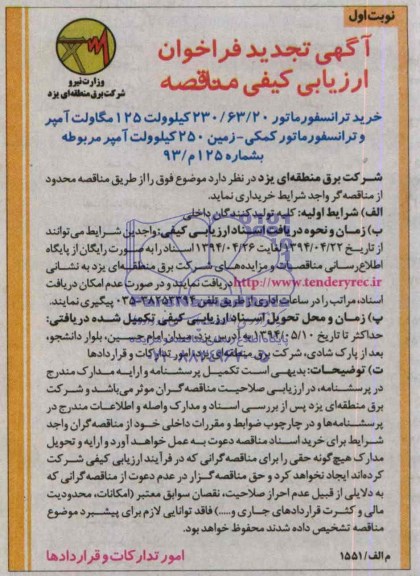 نوبت اول
آگهی تجدید فراخوان
ارزیابی کیفی مناقصه
وزارت نیرو
شرکت برق منطقه‌ای یزد
خرید ترانسفورماتور ۲۳۰/۶۳/۲۰ کیلوولت ۱۲۵ مگاولت آمپر
و ترانسفورماتور کمکی-زمین ۲۵۰ کیلوولت آمپر مربوطه
بشماره ۱۲۵م/۹۳
شرکت برق منطقه‌ای یزد در نظر دارد موضوع فوق را از طریق مناقصه محدود
از مناقصه‌گر واجد شرایط خریداری نماید.
الف) شرایط اولیه: کلیه تولیدکنندگان داخلی
ب) زمان و نحوه دریافت اسناد ارزیابی کیفی: واجدین شرایط می‌توانند
از تاریخ ۱۳۹۴/۰۴/۲۲ لغایت ۱۳۹۴/۰۴/۲۶ اسناد را به صورت رایگان از پایگاه
اطلاع‌رسانی مناقصات و مزایده‌های شرکت برق منطقه‌ای یزد به نشانی
http://www.tenderyrec.ir دریافت نمایند و در صورت عدم امکان دریافت
اسناد، مراتب را در ساعات اداری از طریق تلفن ۳۸۲۵۳۳۹۴-۰۳۵ پیگیری نمایند.
پ) زمان و محل تحویل اسناد ارزیابی کیفی تکمیل شده دریافتی:
حداکثر تا تاریخ ۱۳۹۴/۰۵/۱۰ به آدرس یزد، میدان امام حسین، بلوار دانشجو،
بعد از پارک شادی، شرکت برق منطقه‌ای یزد، امور تدارکات و قراردادها
ت) توضیحات: بدیهی است تکمیل پرسشنامه و ارایه مدارک مندرج
در پرسشنامه، در ارزیابی صلاحیت مناقصه‌گران موثر می‌باشد و شرکت
برق منطقه‌ای یزد پس از بررسی اسناد و مدارک واصله و اطلاعات مندرج در
پرسشنامه‌ها و در چارچوب ضوابط و مقررات داخلی خود از مناقصه‌گران واجد
شرایط برای خرید اسناد مناقصه دعوت به عمل خواهد آورد و ارایه و تحویل
مدارک هیچگونه حقی را برای مناقصه‌گرانی که در فرآیند ارزیابی کیفی شرکت
کرده‌اند ایجاد نخواهد کرد و حق مناقصه‌گزار در عدم دعوت از مناقصه‌گرانی که
به دلایلی از قبیل عدم احراز صلاحیت، نقصان سوابق معتبر (امکانات، محدودیت
مالی و کثرت قراردادهای جاری و.....) فاقد توانایی لازم برای پیشبرد موضوع
مناقصه تشخیص داده شدند محفوظ خواهد بود.
م الف/۱۵۵۱
امور تدارکات و قراردادها